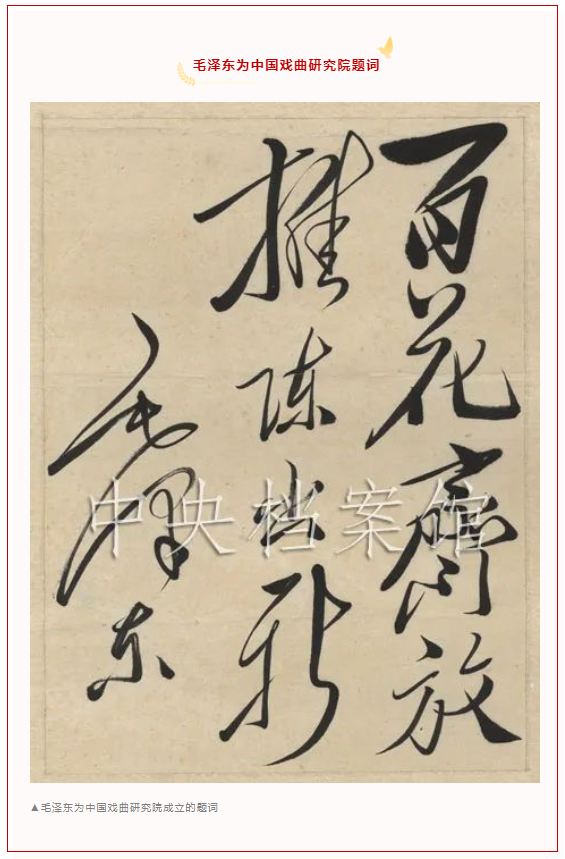 毛泽东为中国戏曲研究院题词
百花齊放
推陈出新
毛泽东
中央档案馆
▲毛泽东为中国戏曲研究院成立的题词